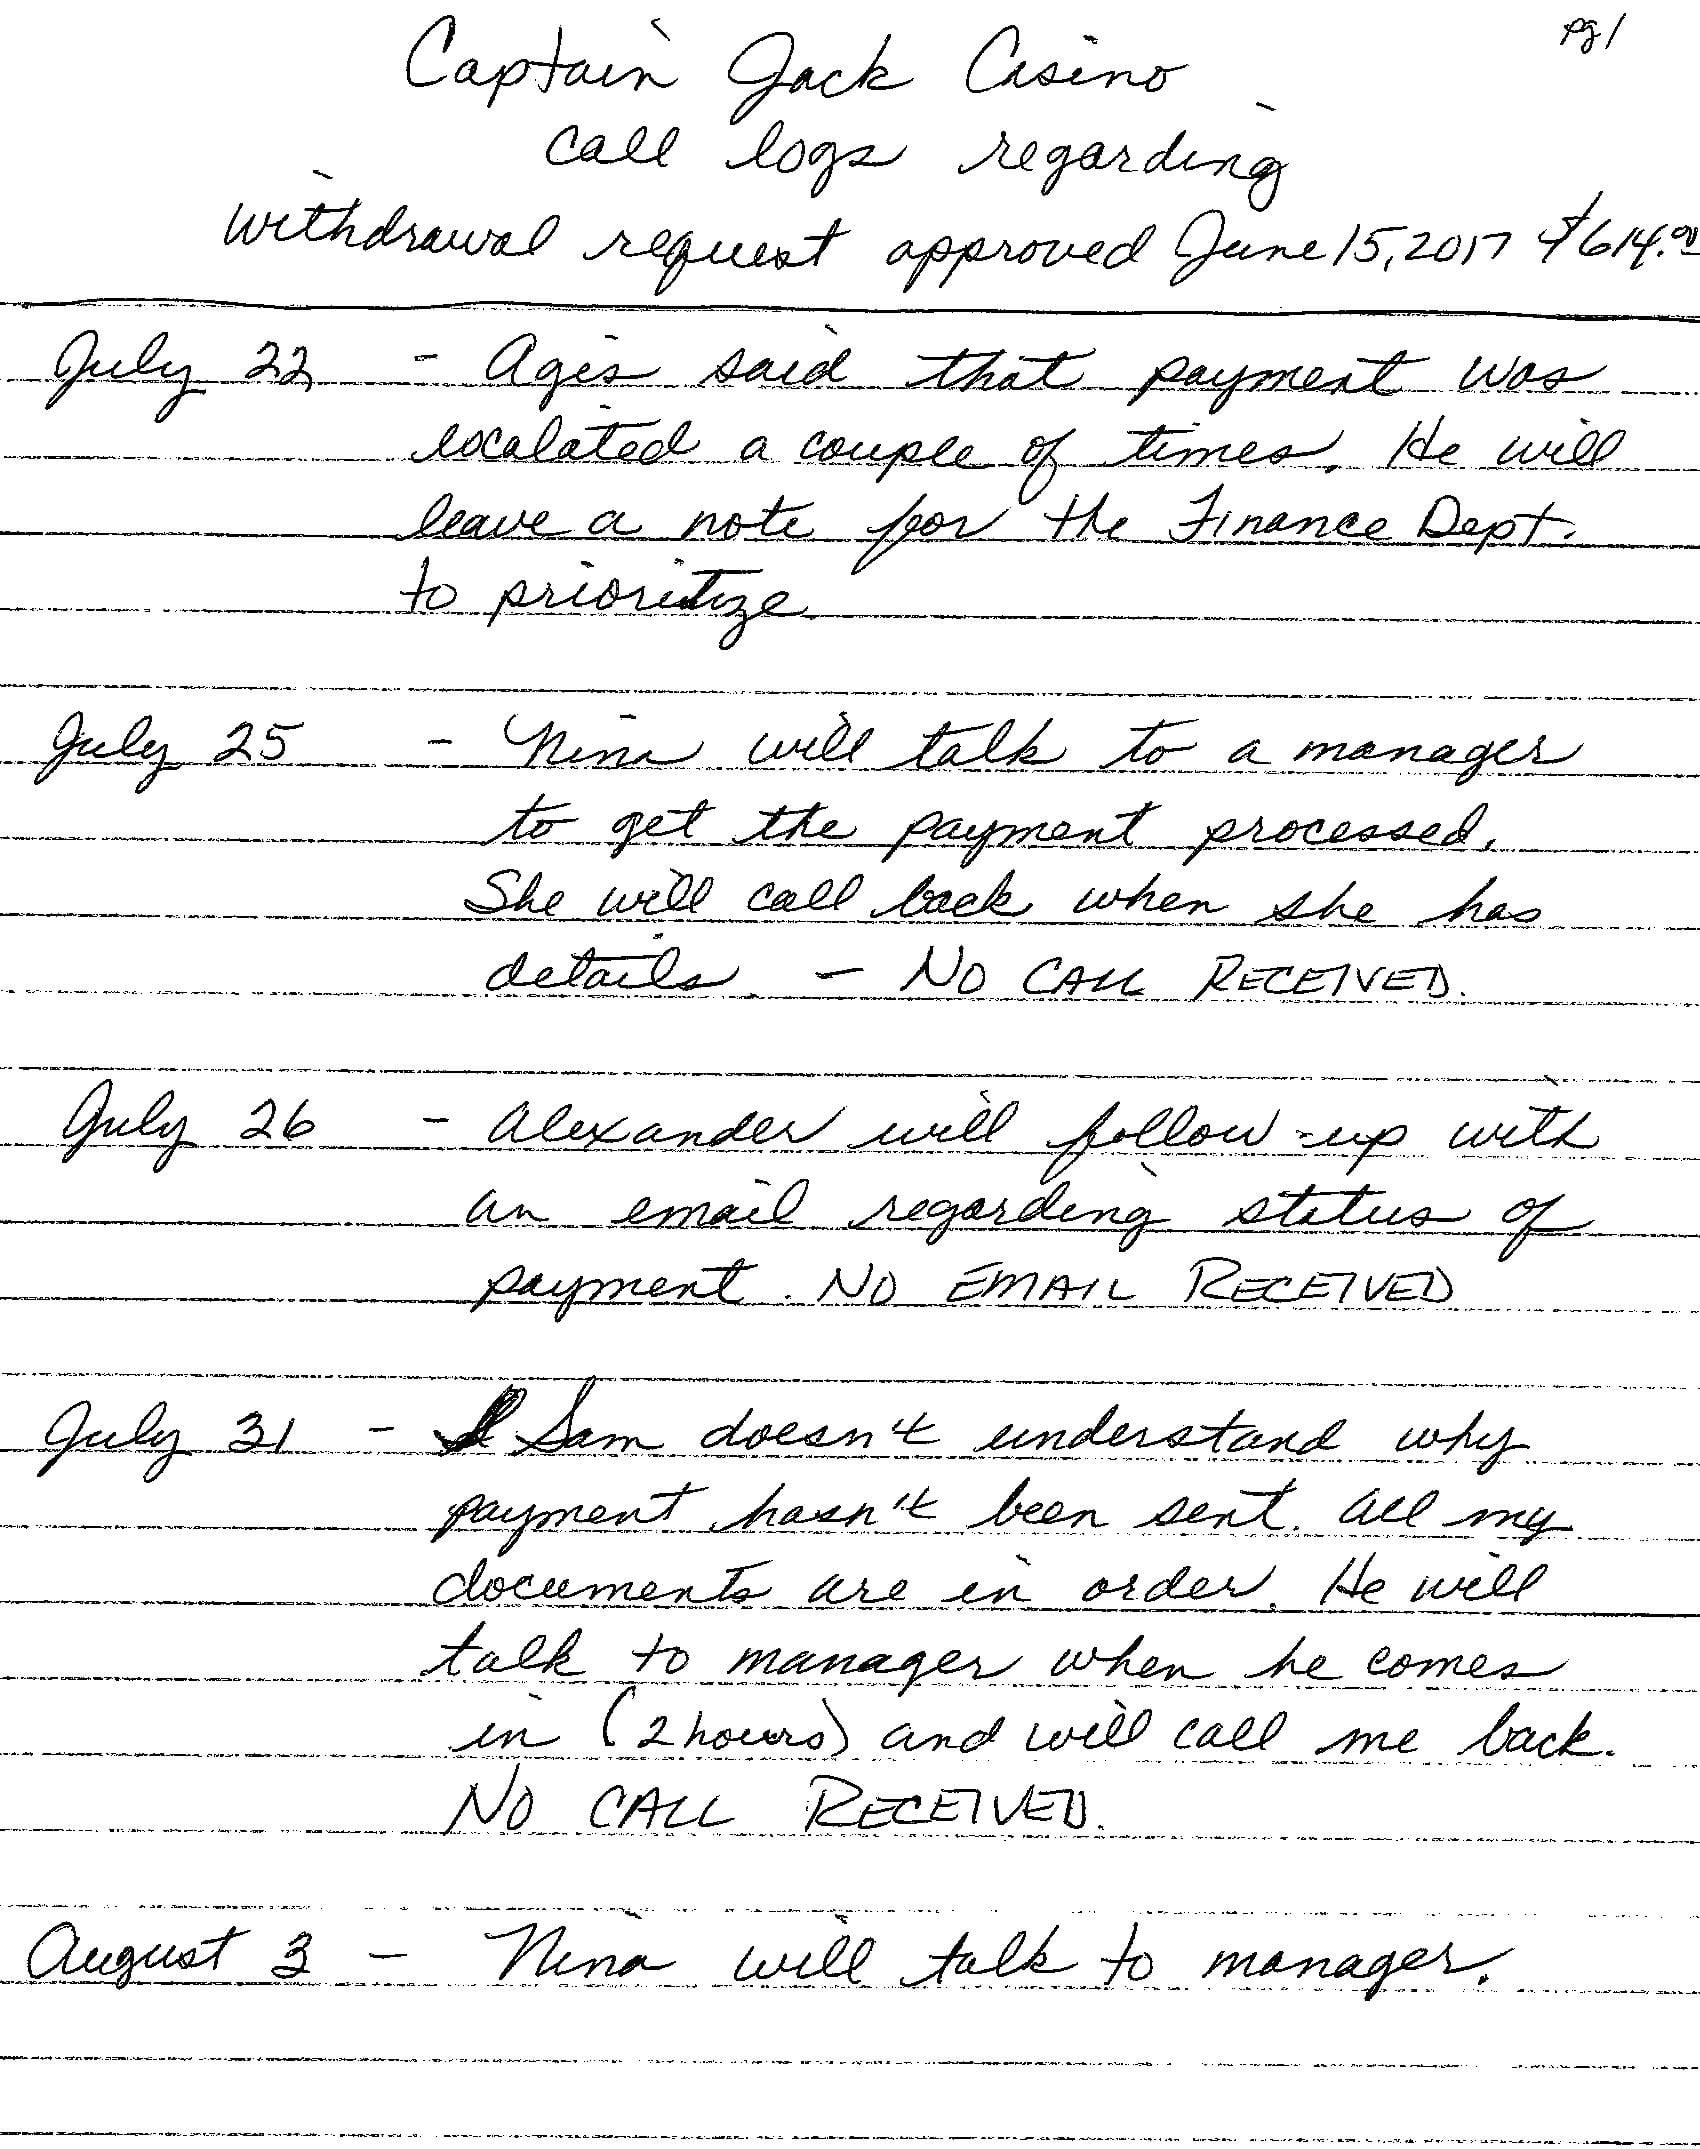 pg 1
Captain Jack Casino
call logs regarding
withdrawal request approved June 15, 2017 $614.00
July 22 - Agis said that payment was
escalated a couple of times. He will
leave a note for the Finance Dept.
to prioritize
July 25 - Nina will talk to a manager
to get the payment processed.
She will call back when she has
details - NO CALL RECEIVED.
July 26 - Alexander will follow-up with
an email regarding status of
payment. NO EMAIL RECEIVED
July 31 - Sam doesn't understand why
payment hasn't been sent. All my
documents are in order. He will
talk to manager when he comes
in (2 hours) and will call me back.
NO CALL RECEIVED.
August 3 - Nina will talk to manager.